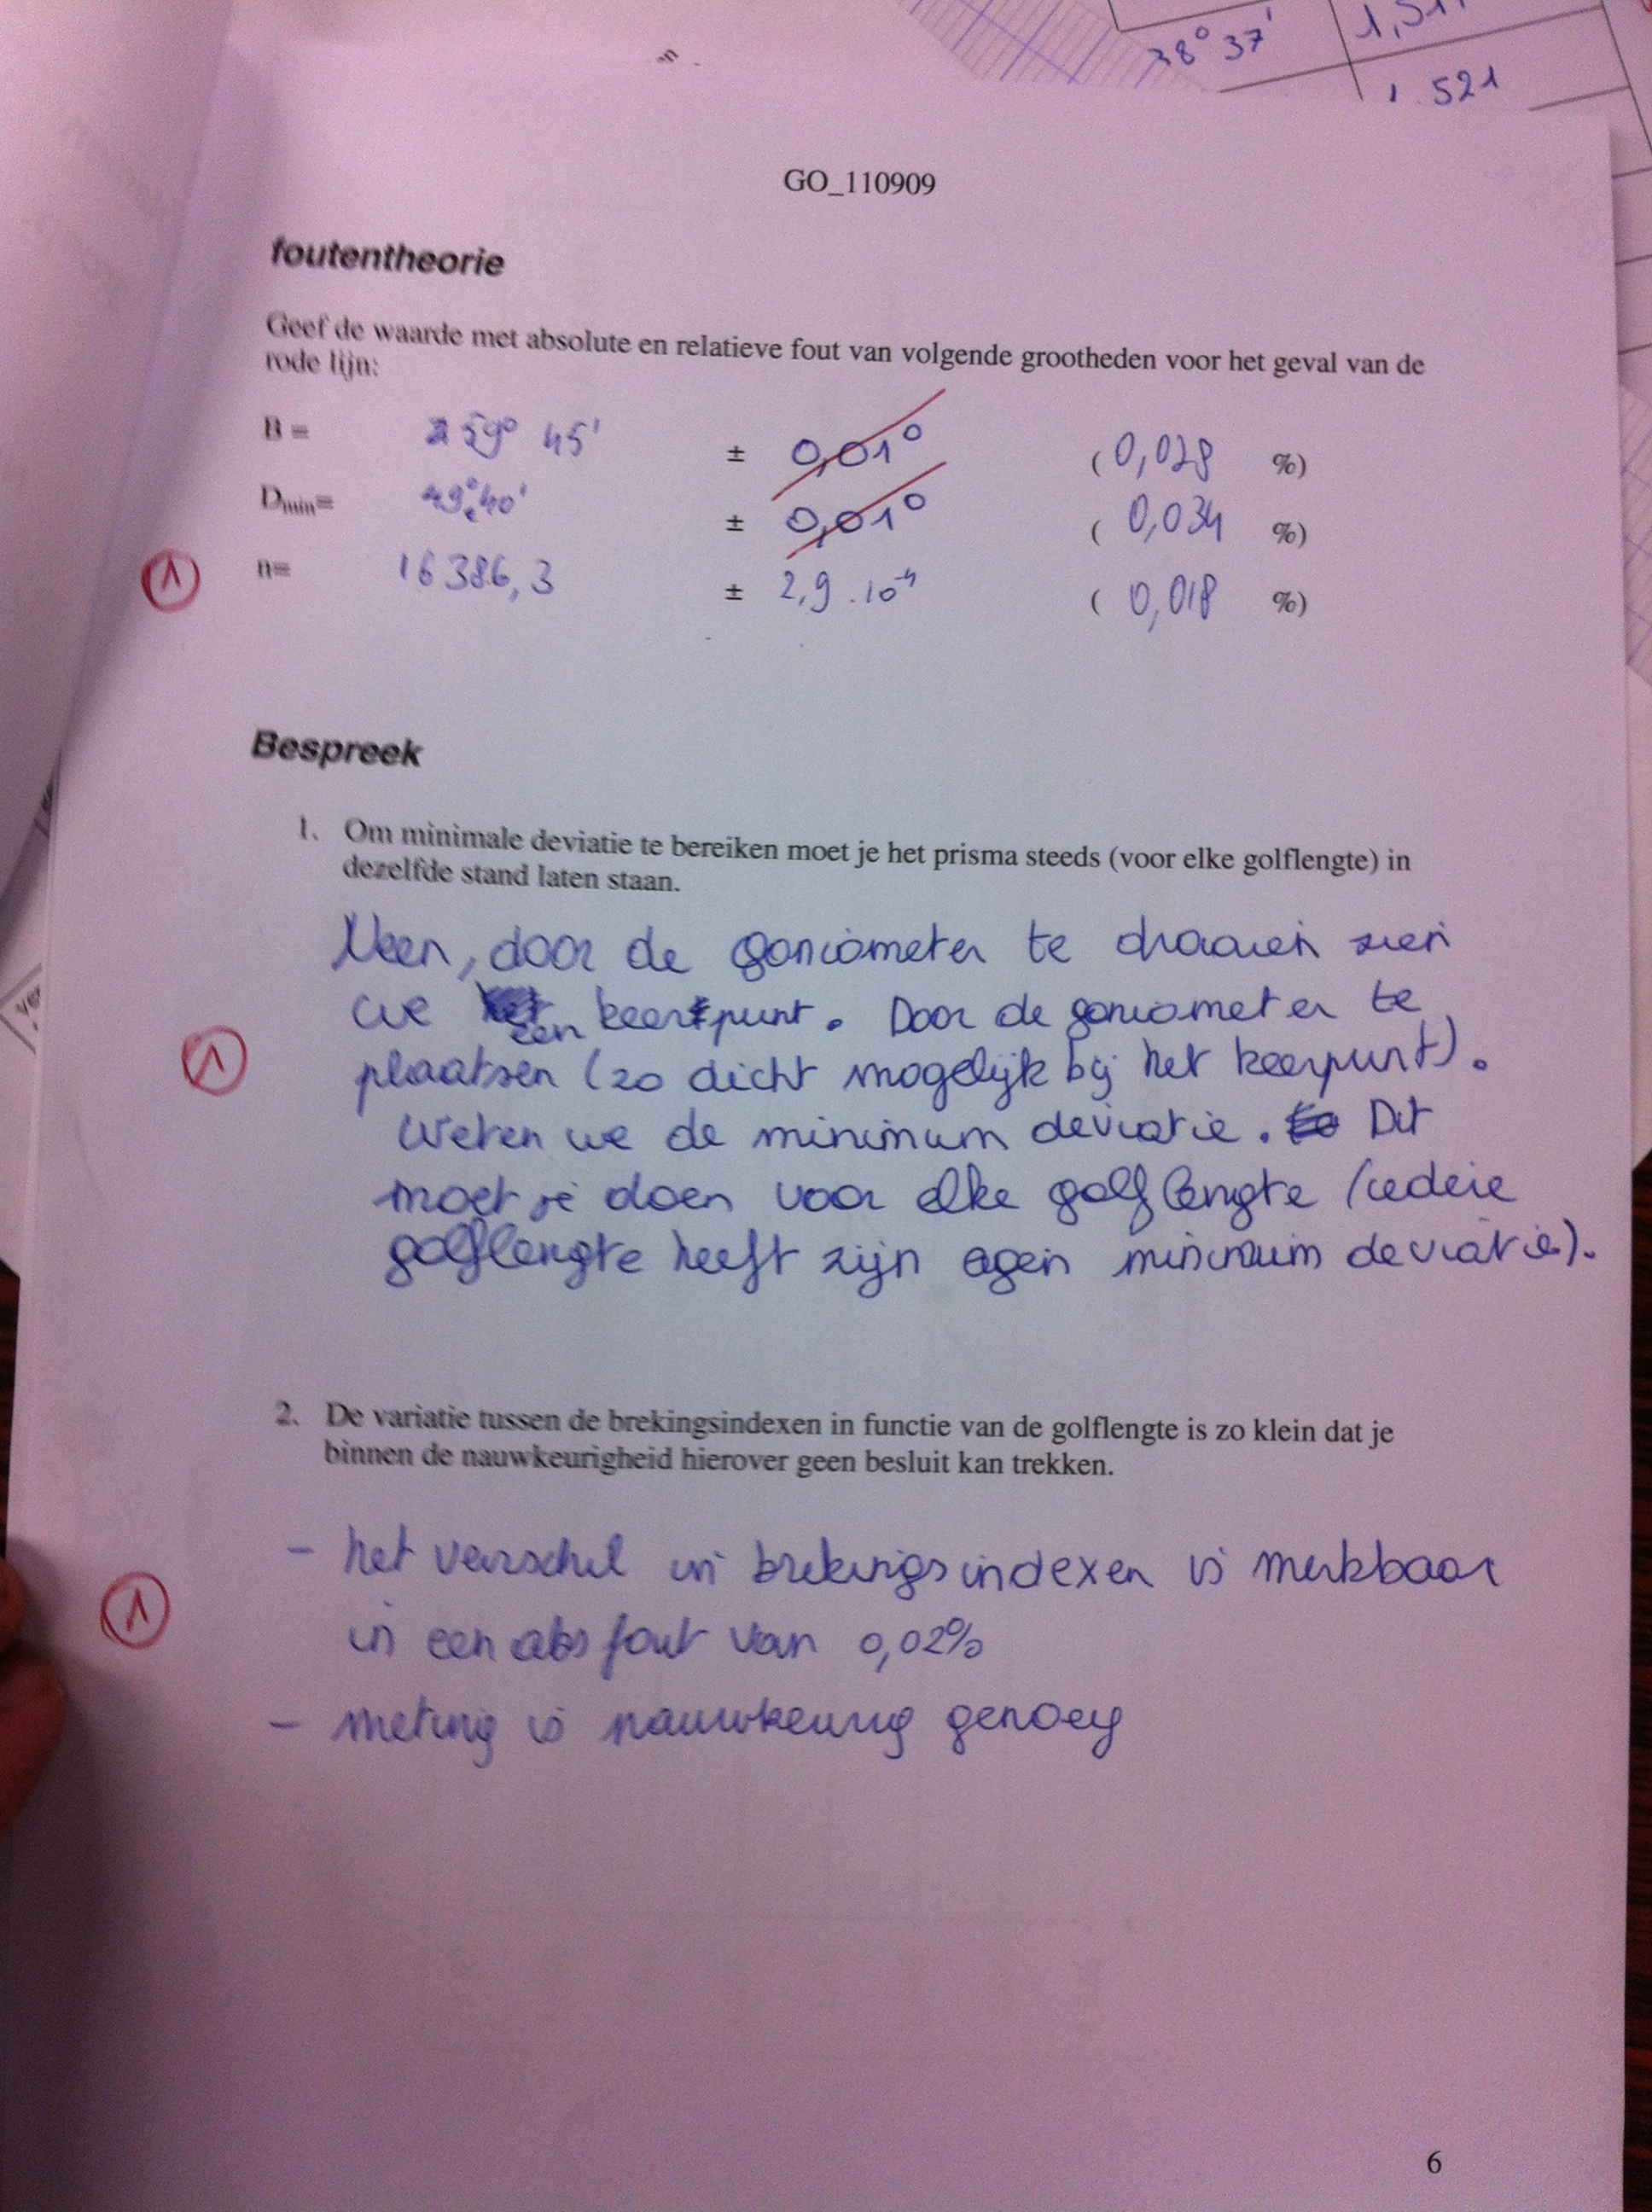 38° 37'
1,51
1.521
GO_110909
foutentheorie
Geef de waarde met absolute en relatieve fout van volgende grootheden voor het geval van de
rode lijn:
B = 59° 45' ± 0,01° ( 0,028 %)
Dmin= 49°40' ± 0,01° ( 0,034 %)
1
n= 16386,3 ± 2,9 . 10⁻⁴ ( 0,018 %)
Bespreek
1. Om minimale deviatie te bereiken moet je het prisma steeds (voor elke golflengte) in
dezelfde stand laten staan.
Neen, door de goniometer te draaien zien
we een keerpunt. Door de goniometer te
1
plaatsen (zo dicht mogelijk bij het keerpunt).
Weten we de minimum deviatie. Dit
moet je doen voor elke golflengte (iedere
golflengte heeft zijn eigen minimum deviatie).
2. De variatie tussen de brekingsindexen in functie van de golflengte is zo klein dat je
binnen de nauwkeurigheid hierover geen besluit kan trekken.
- het verschil in brekingsindexen is merkbaar
1
in een abs fout van 0,02%
- meting is nauwkeurig genoeg
6